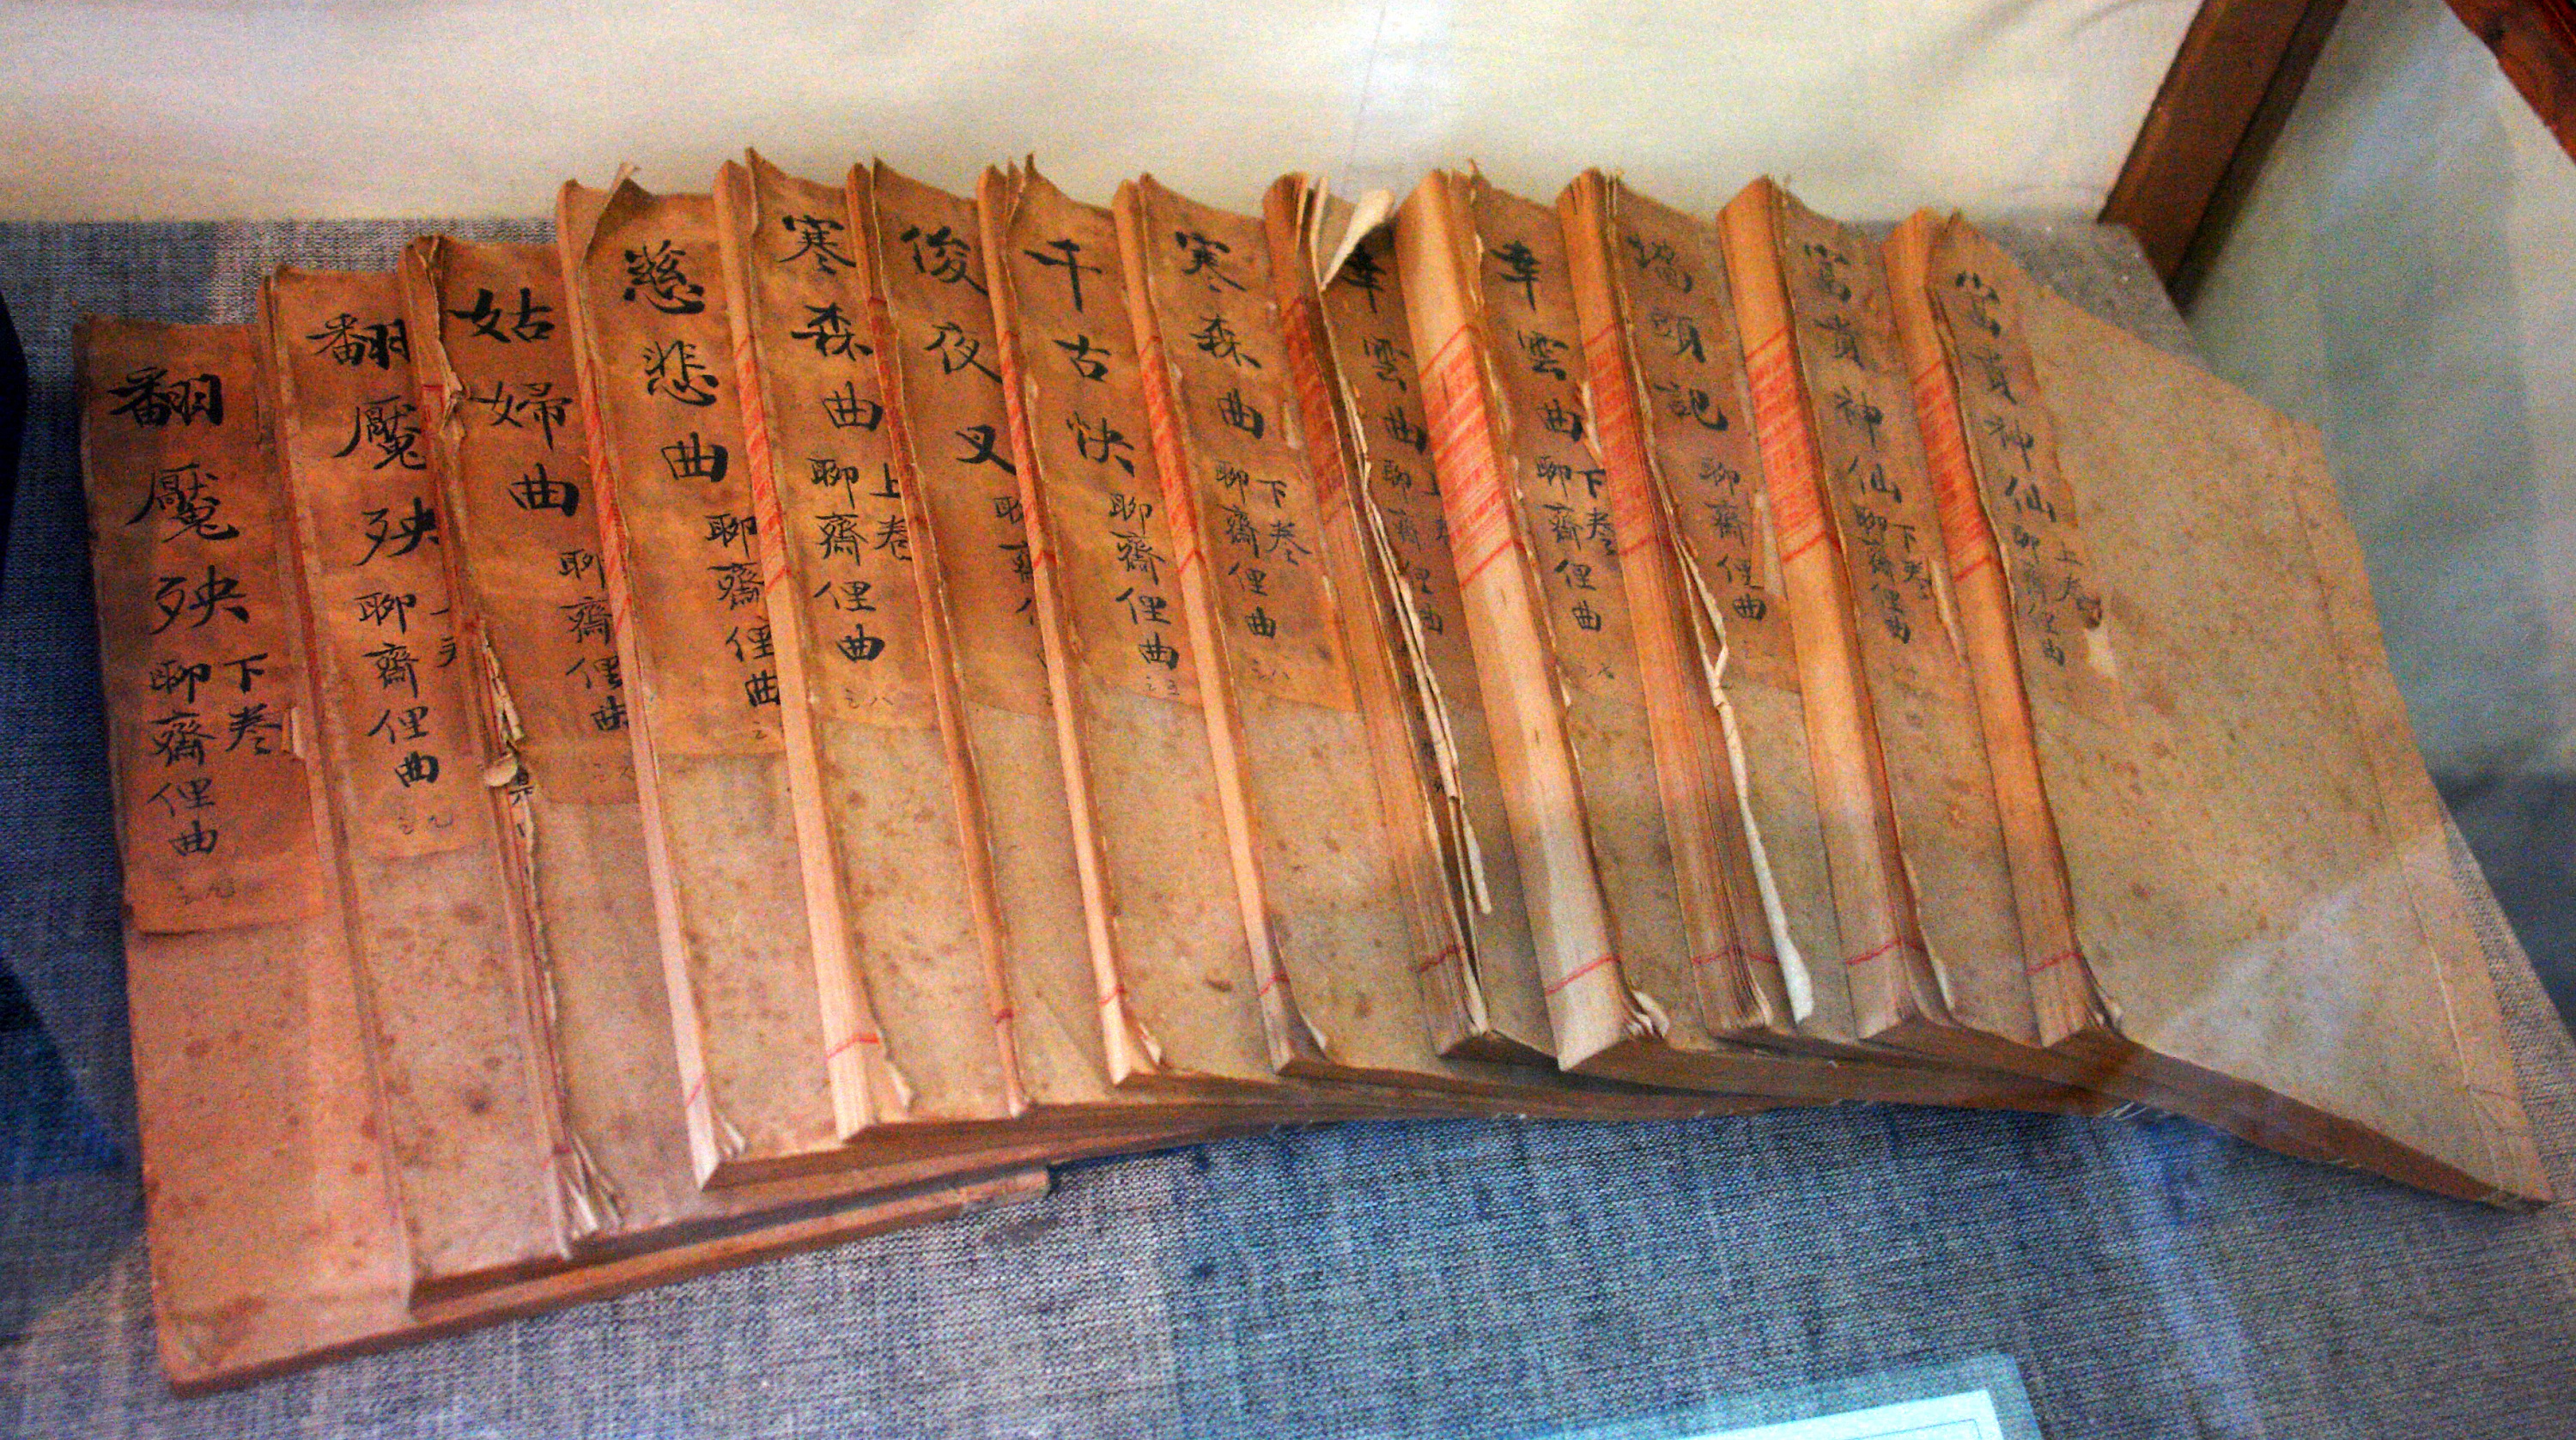 翻魘殃
下卷
聊齋俚曲
翻魘殃
聊齋俚曲
姑婦曲
聊齋俚曲
慈悲曲
聊齋俚曲
寒森曲
上卷
聊齋俚曲
之八
俊夜叉
聊齋
千古快
聊齋俚曲
之五
寒森曲
下卷
聊齋俚曲
之八
幸雲曲
上
聊齋俚曲
幸雲曲
下卷
聊齋俚曲
之七
墻頭記
聊齋俚曲
富貴神仙
下卷
聊齋俚曲
富貴神仙
上卷
聊齋俚曲